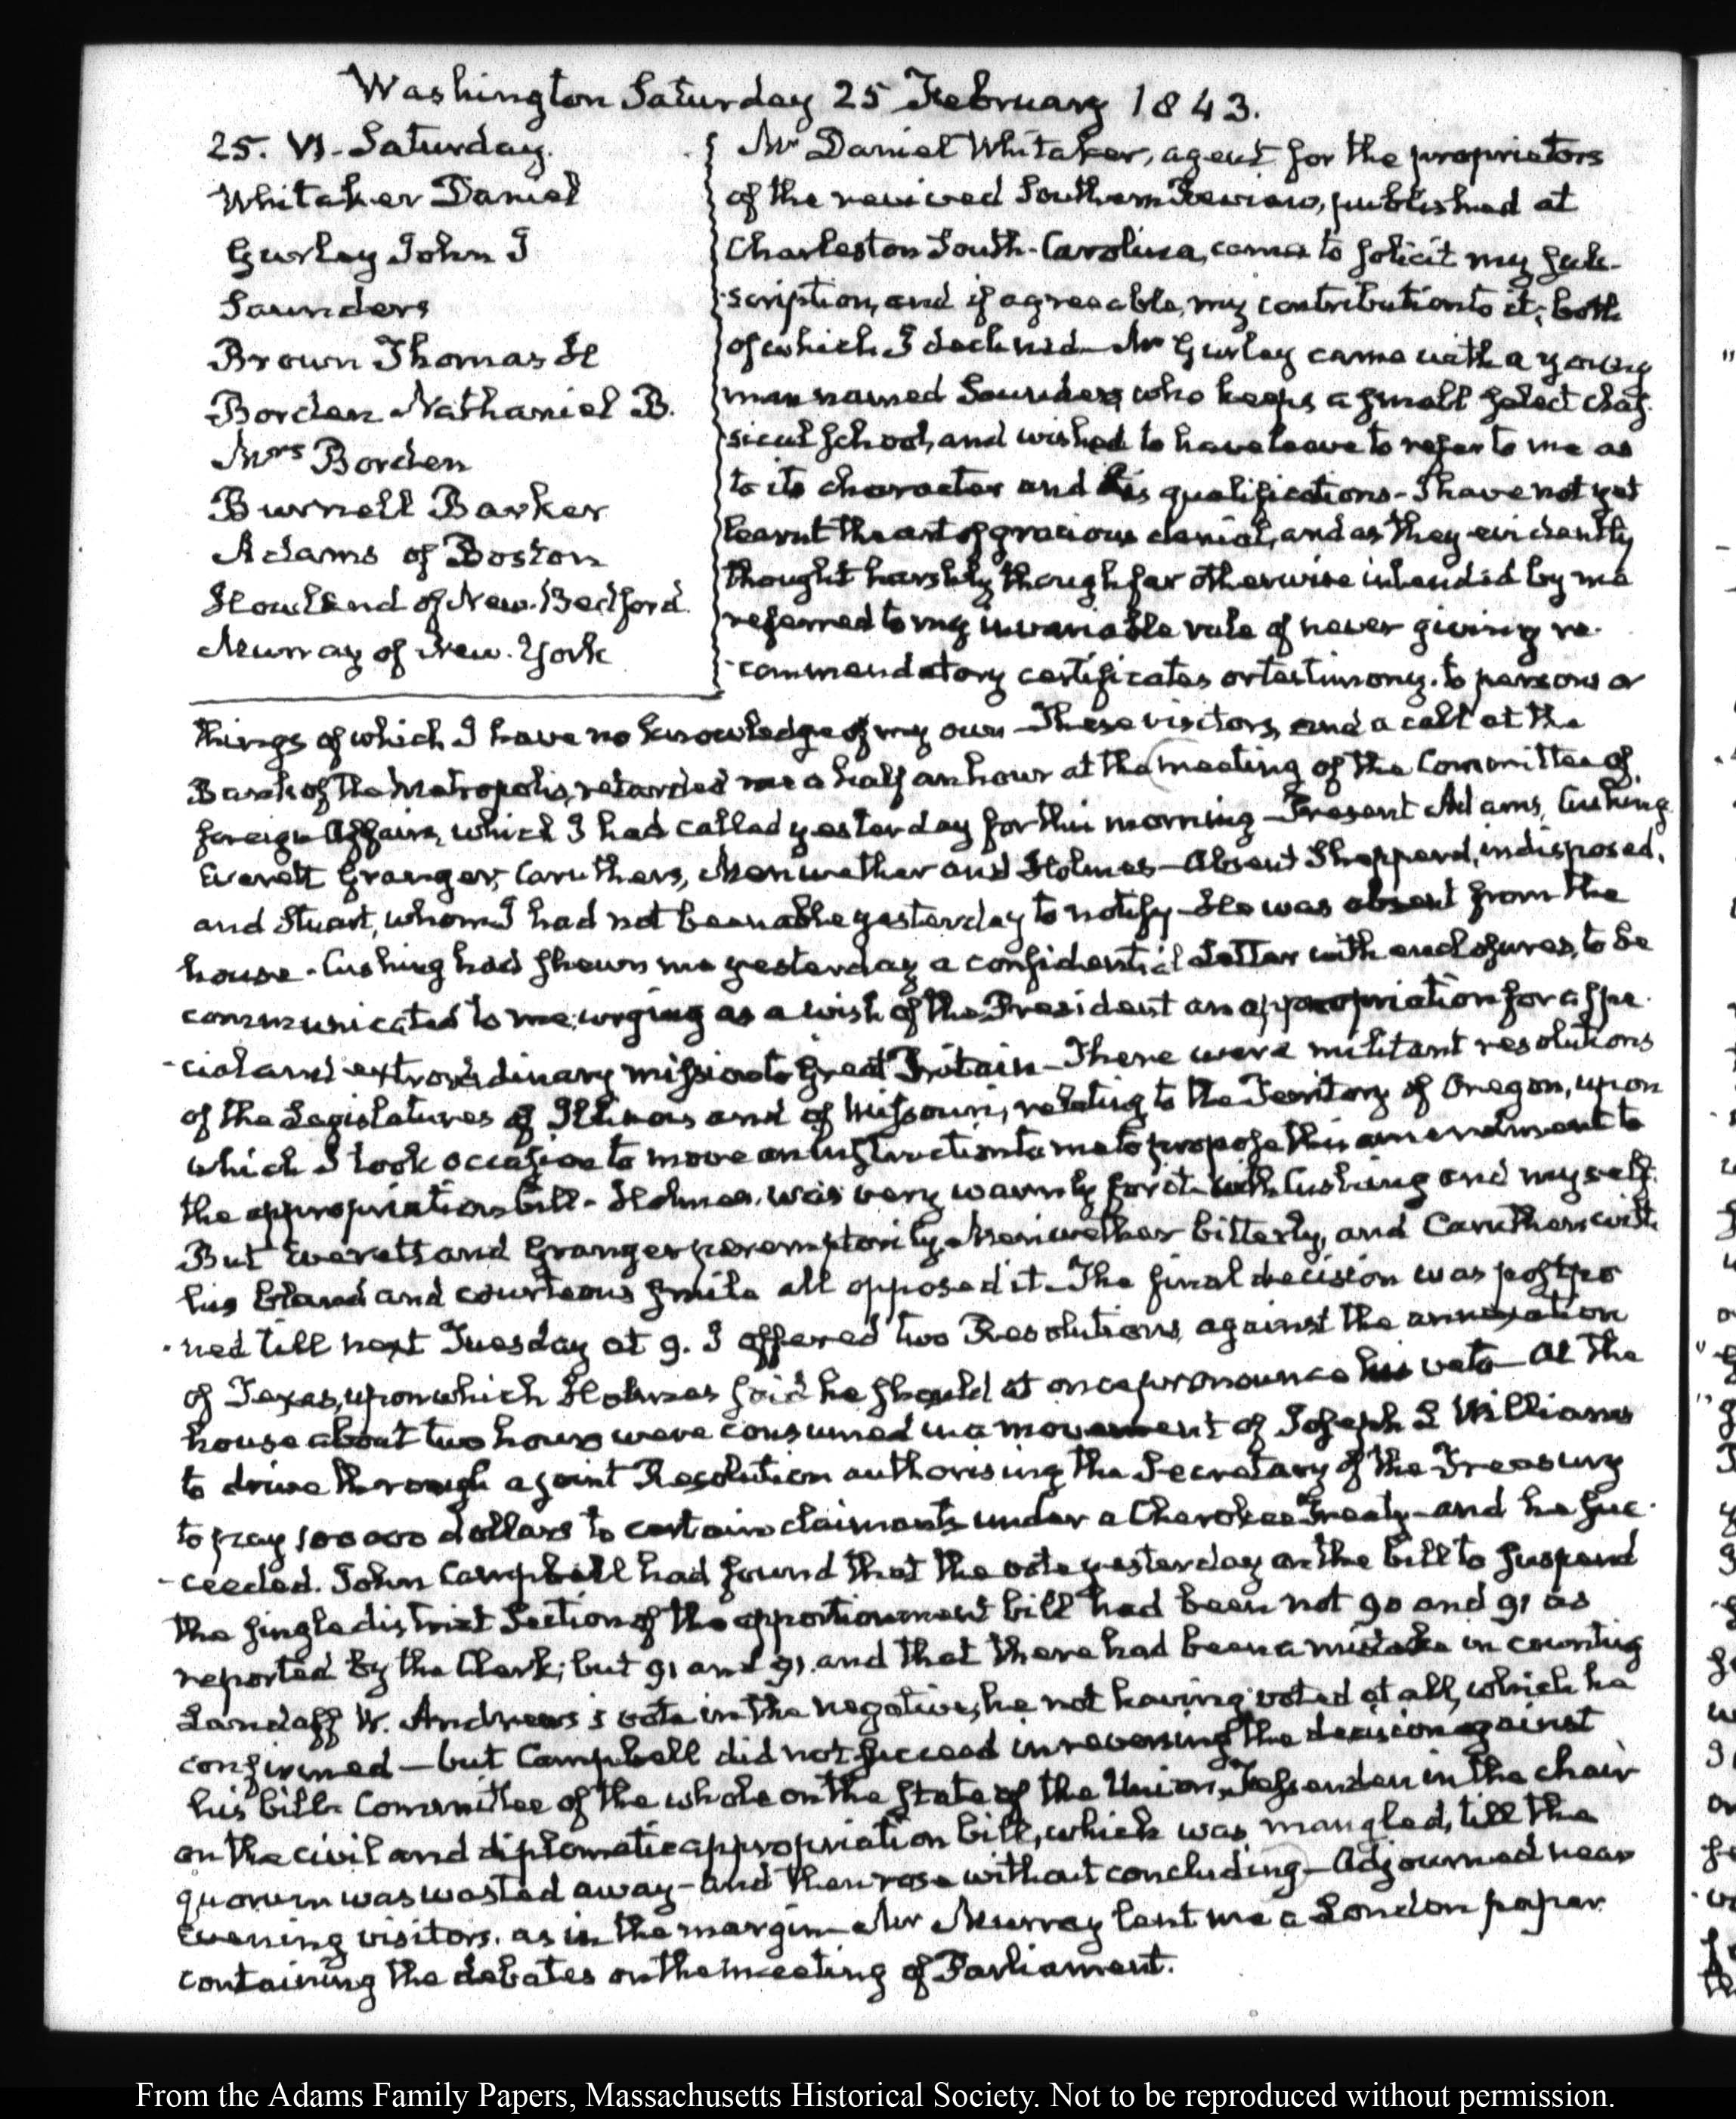 Washington Saturday 25 February 1843.
25. VI. Saturday.
Whitaker Daniel
Gurley John I
Saunders
Brown Thomas H
Borden Nathaniel B.
Mrs Borden
Burnell Barker
Adams of Boston
Howland of New-Bedford.
Murray of New-York
Mr Daniel Whitaker, agent for the proprietors
of the revived Southern Review, published at
Charleston South-Carolina, came to solicit my sub-
-scription, and if agreeable, my contribution to it; both
of which I declined — Mr Gurley came with a young
man named Saunders, who keeps a small select clas-
-sical school, and wished to have leave to refer to me as
to its character and his qualifications — I have not yet
learnt the art of gracious denial, and as they evidently
thought harshly though far otherwise intended by me
referred to my invariable rule of never giving re-
-commendatory certificates or testimony to persons or
things of which I have no knowledge of my own — These visitors, and a call at the
Bank of the Metropolis, retarded me a half an hour at the meeting of the Committee of
foreign Affairs, which I had called yesterday for this morning — Present Adams, Cushing
Everett Granger, Caruthers, Meriwether and Holmes — Absent Shepperd, indisposed,
and Stuart, whom I had not been able yesterday to notify — He was absent from the
house - Cushing had shewn me yesterday a confidential Letter with enclosures, to be
communicated to me; urging as a wish of the President an appropriation for a spe-
-cial and extraordinary mission to Great Britain — There were militant resolutions
of the Legislatures of Illinois and of Missouri, relating to the Territory of Oregon, upon
which I took occasion to move an instruction to me to propose this amendment to
the appropriation bill - Holmes was very warmly for it with Cushing and myself.
But Everett and Granger peremptorily, Meriwether bitterly, and Caruthers with
his bland and courteous smile all opposed it — The final decision was postpo
-ned till next Tuesday at 9. I offered two Resolutions against the annexation
of Texas, upon which Holmes said he should at once pronounce his veto — At the
house about two hours were consumed in a movement of Joseph L Williams
to drive through a joint Resolution authorising the Secretary of the Treasury
to pay 100000 dollars to certain claimants under a Cherokee Treaty — and he suc-
-ceeded. John Campbell had found that the vote yesterday on the bill to suspend
the single district Section of the apportionment bill had been not 90 and 91 as
reported by the Clerk; but 91 and 91. and that there had been a mistake in counting
Landaff W. Andrews's vote in the negative, he not having voted at all, which he
confirmed — but Campbell did not succeed in reversing the decision against
his bill. Committee of the whole on the state of the Union, Fessenden in the chair
on the civil and diplomatic appropriation bill, which was mangled, till the
quorum was wasted away — and then rose without concluding — Adjourned near
Evening visitors. as in the margin — Mr Murray lent me a London paper
containing the debates on the meeting of Parliament.
From the Adams Family Papers, Massachusetts Historical Society. Not to be reproduced without permission.